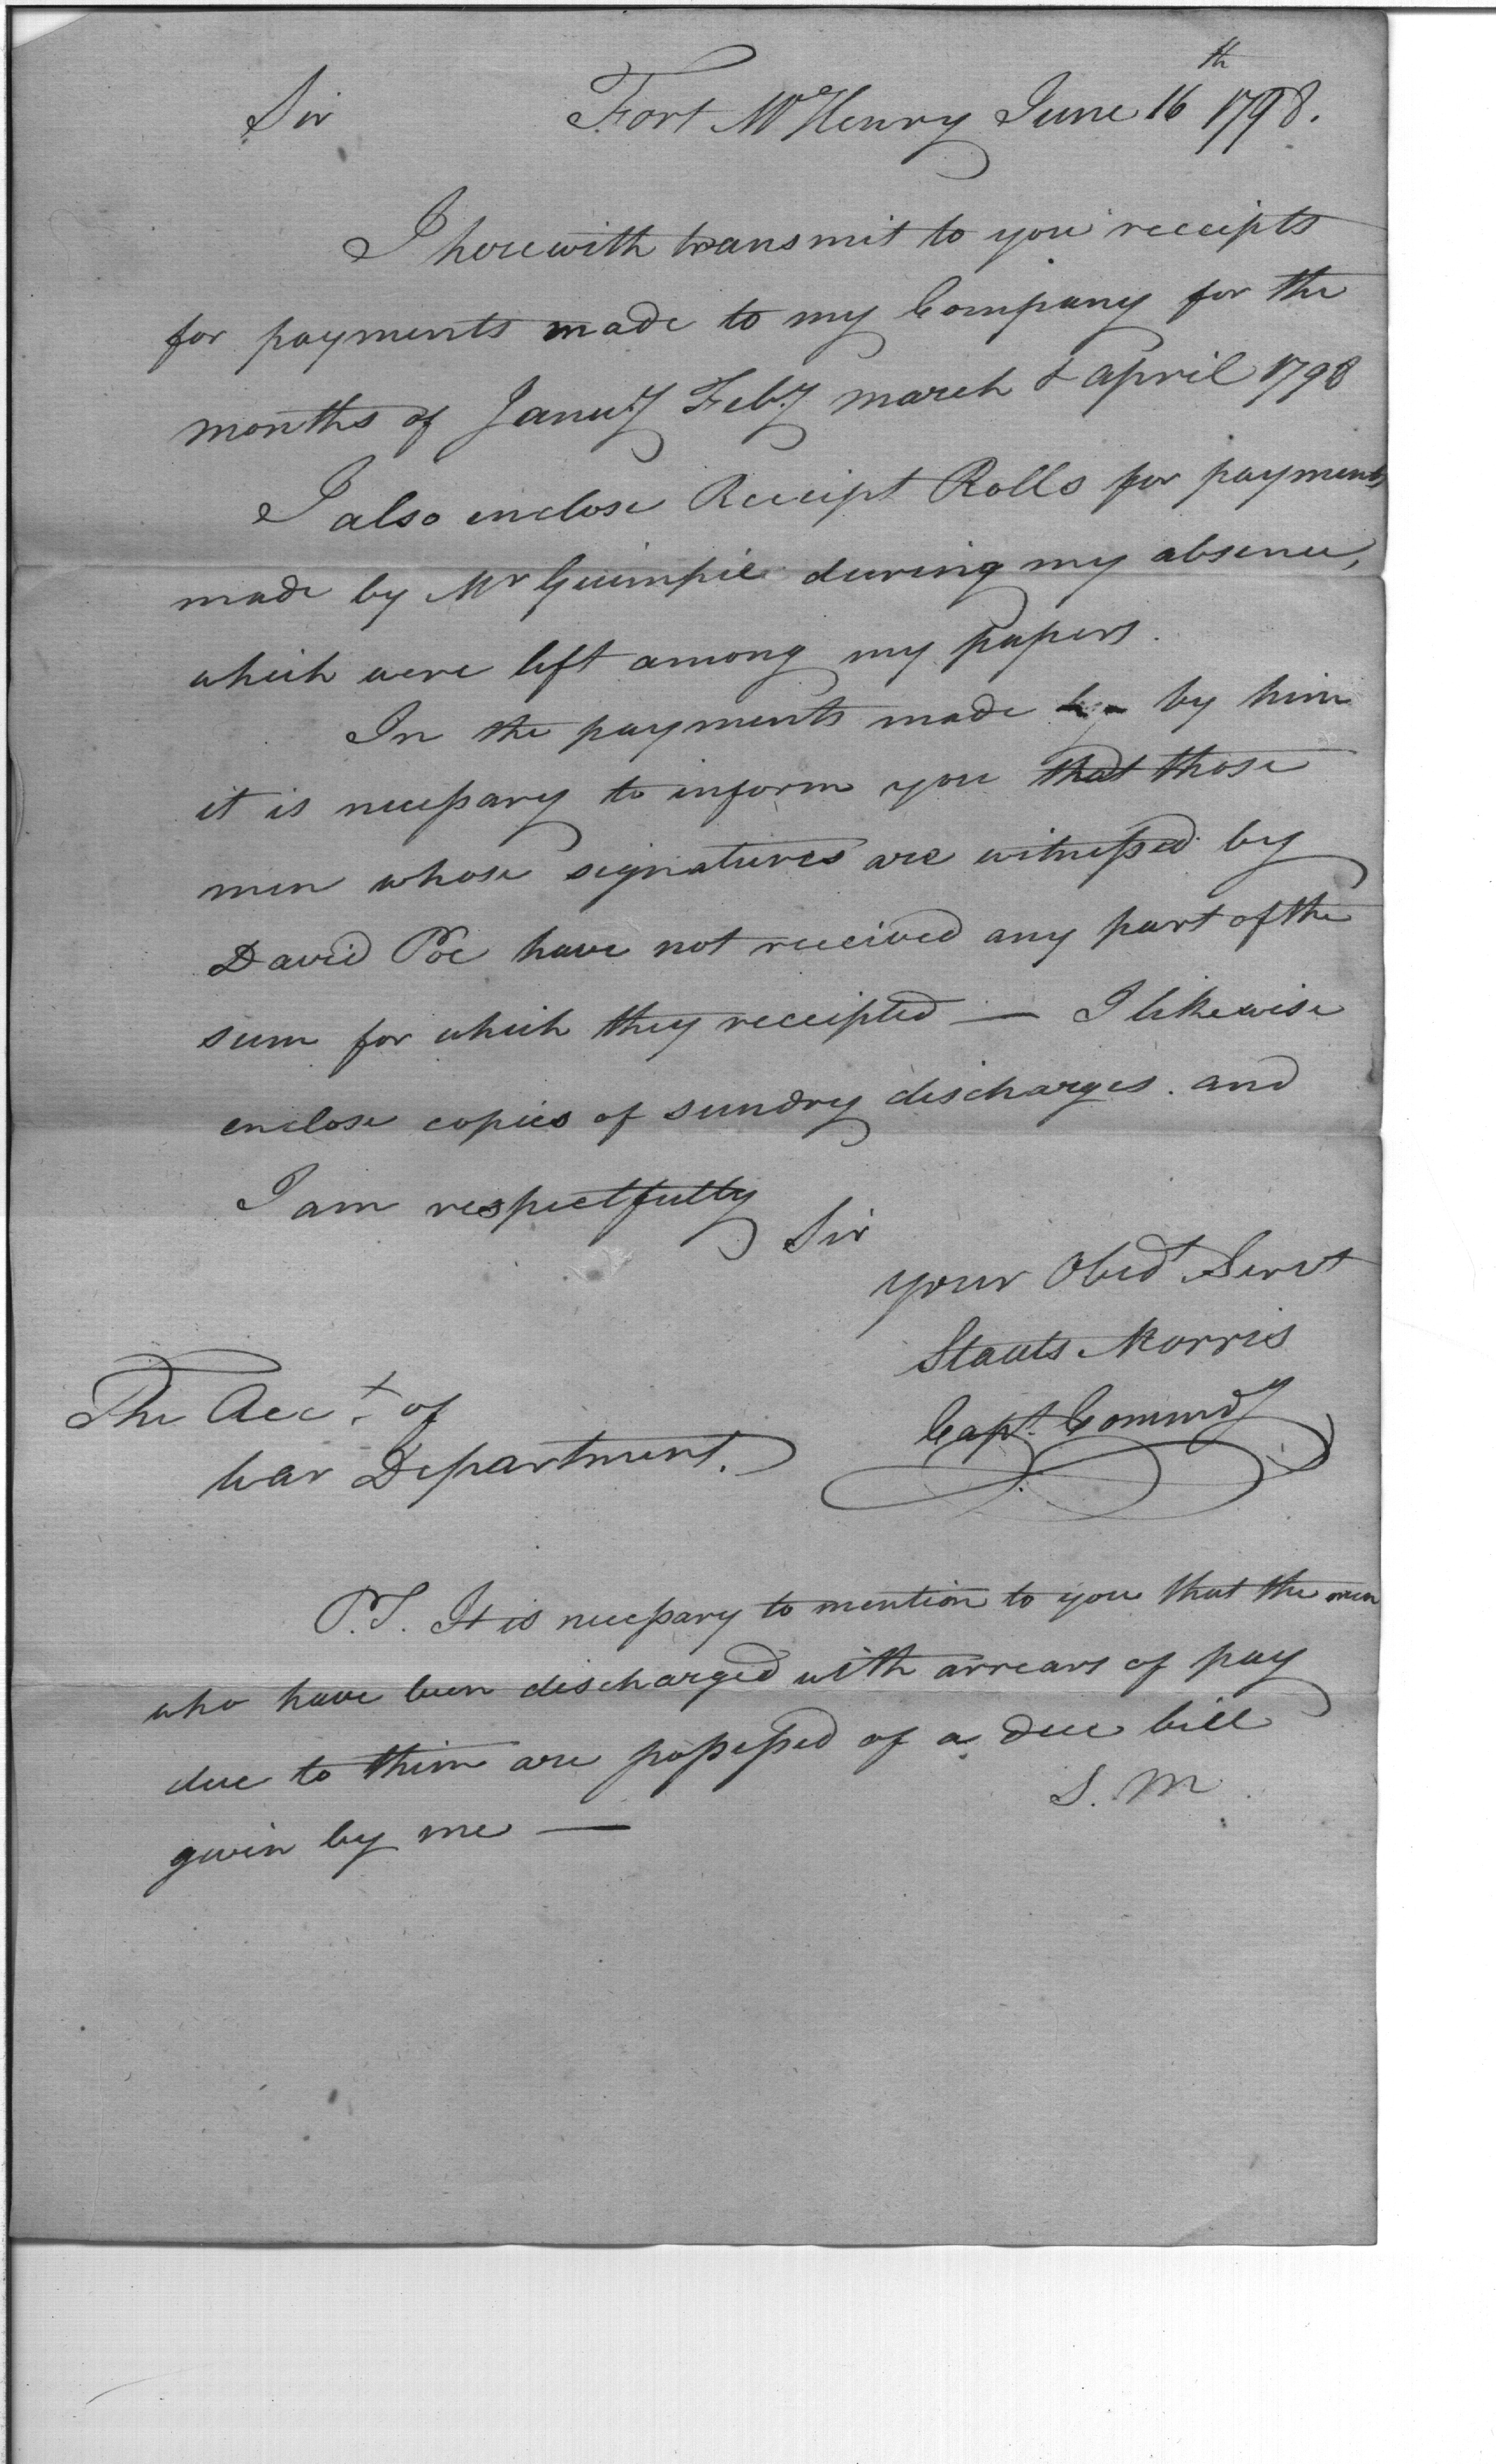 Sir Fort McHenry June 16th 1798.
I herewith transmit to you receipts
for payments made to my Company for the
months of Januy Feby march & april 1798
I also enclose Receipt Rolls for payments
made by Mr Guimpie during my absence,
which were left among my papers.
In the payments made by him
it is necessary to inform you that those
men whose signatures are witnessed by
David Poe have not received any part of the
sum for which they receipted — I likewise
enclose copies of sundry discharges. and
I am respectfully
Sir
your Obedt Servt
Staats Morris
Capt. Commdy
The Acct. of
War Department.
P.S. It is necessary to mention to you that the men
who have been discharged with arrears of pay
due to them are possessed of a due bill
given by me —
S. M.